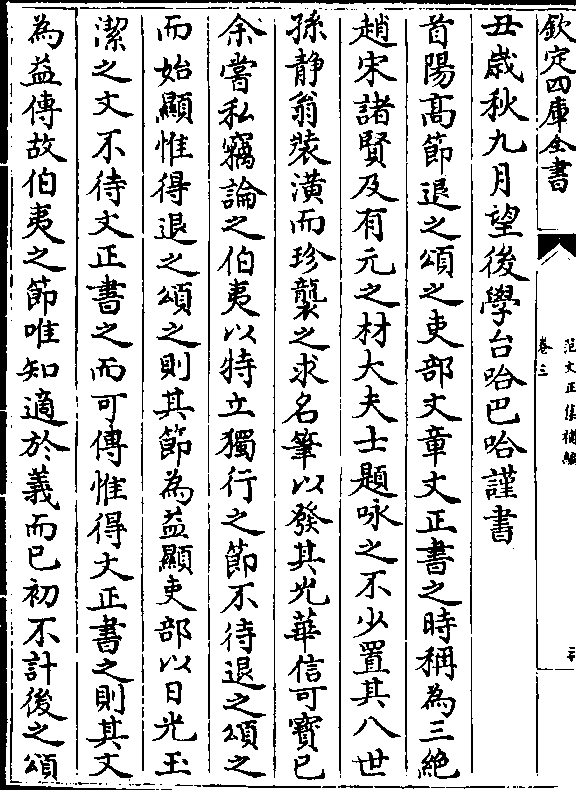 欽定四庫全書
范文正集補編
卷三
丑歲秋九月望後學台哈巴哈謹書
首陽高節退之頌之吏部文章文正書之時稱為三絶
趙宋諸賢及有元之材大夫士題咏之不少置其八世
孫静翁裝潢而珍襲之求名筆以發其光華信可寶已
余嘗私竊論之伯夷以特立獨行之節不待退之頌之
而始顯惟得退之頌之則其節為益顯吏部以日光玉
潔之文不待文正書之而可傳惟得文正書之則其文
為益傳故伯夷之節唯知適於義而已初不計後之頌